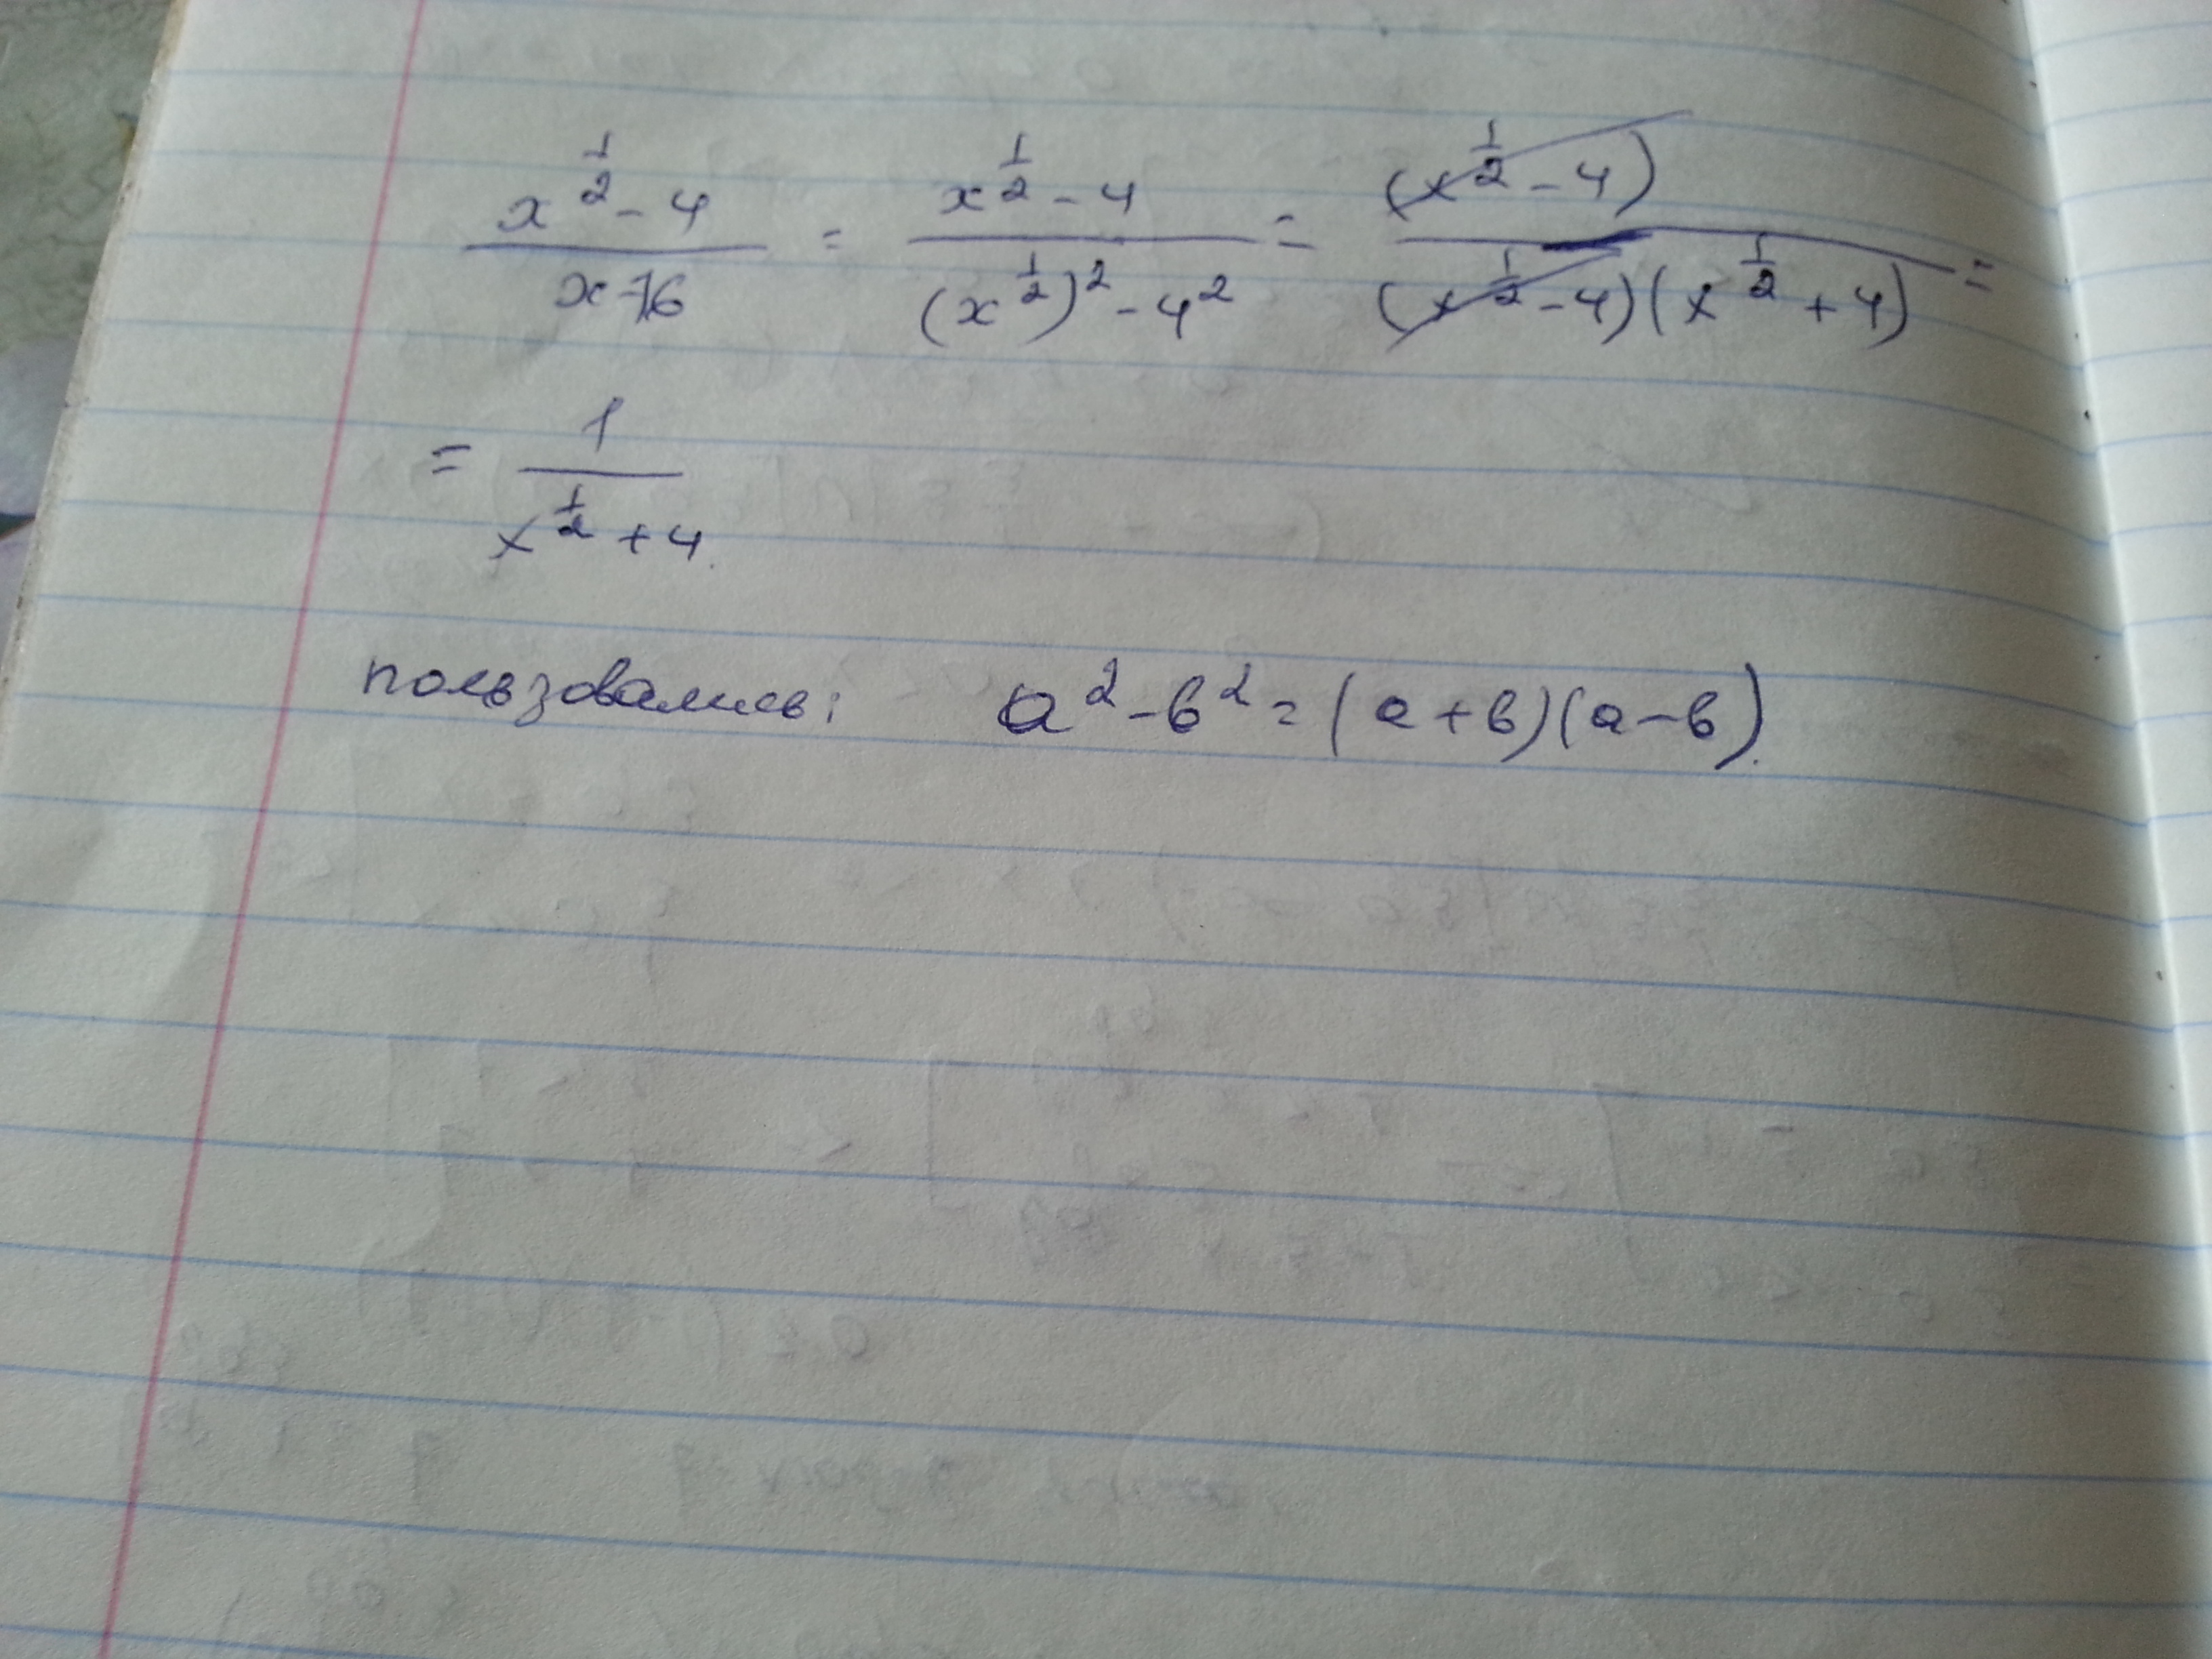 x^{1/2} - 4 / x - 16 = x^{1/2} - 4 / (x^{1/2})^2 - 4^2 = (x^{1/2} - 4) / (x^{1/2} - 4)(x^{1/2} + 4) =
= 1 / x^{1/2} + 4.
пользовались: a^2 - в^2 = (a + в)(a - в).